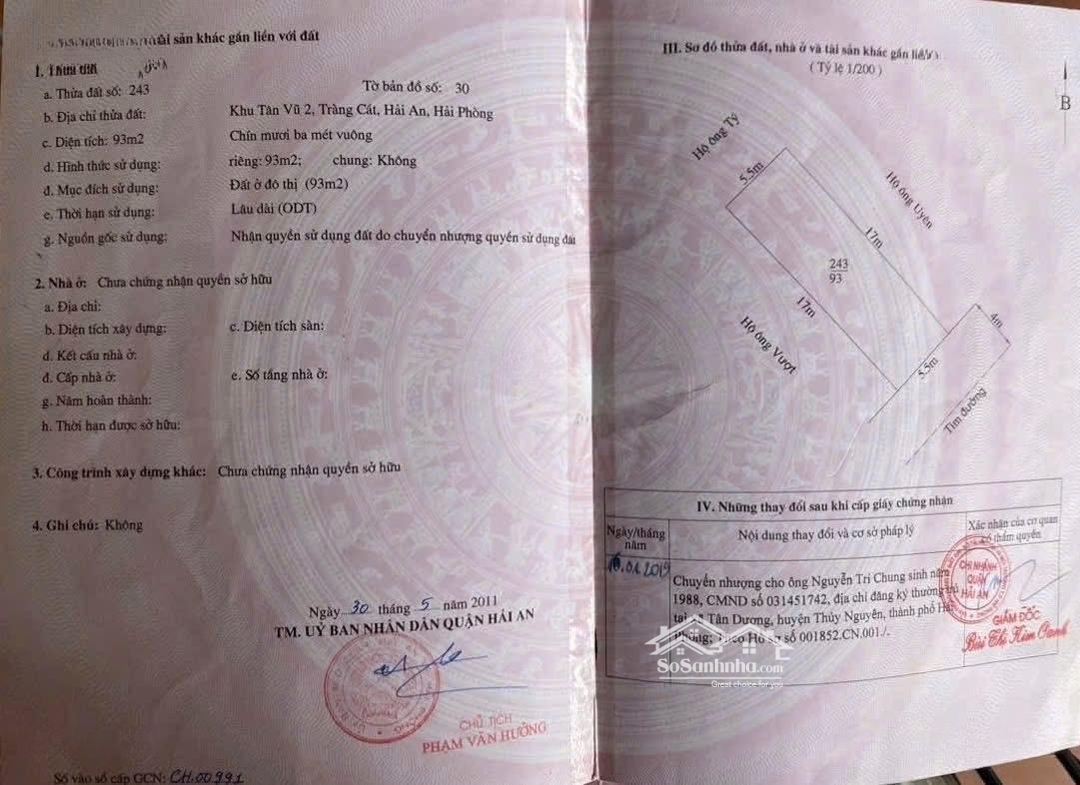 tài sản khác gắn liền với đất
1. Thửa đất
a. Thửa đất số: 243 Tờ bản đồ số: 30
b. Địa chỉ thửa đất: Khu Tân Vũ 2, Tràng Cát, Hải An, Hải Phòng
c. Diện tích: 93m2 Chín mươi ba mét vuông
d. Hình thức sử dụng: riêng: 93m2; chung: Không
đ. Mục đích sử dụng: Đất ở đô thị (93m2)
e. Thời hạn sử dụng: Lâu dài (ODT)
g. Nguồn gốc sử dụng: Nhận quyền sử dụng đất do chuyển nhượng quyền sử dụng đất
2. Nhà ở: Chưa chứng nhận quyền sở hữu
a. Địa chỉ:
b. Diện tích xây dựng: c. Diện tích sàn:
d. Kết cấu nhà ở:
đ. Cấp nhà ở: e. Số tầng nhà ở:
g. Năm hoàn thành:
h. Thời hạn được sở hữu:
3. Công trình xây dựng khác: Chưa chứng nhận quyền sở hữu
4. Ghi chú: Không
Ngày 30 tháng 5 năm 2011
TM. UỶ BAN NHÂN DÂN QUẬN HẢI AN
CHỦ TỊCH
PHẠM VĂN HƯỜNG
Số vào sổ cấp GCN: CH.00991
III. Sơ đồ thửa đất, nhà ở và tài sản khác gắn liền
( Tỷ lệ 1/200 )
B
Hộ ông Tý
5.5m
Hộ ông Uyên
17m
243
93
17m
Hộ ông Vượt
4m
5.5m
Tim đường
IV. Những thay đổi sau khi cấp giấy chứng nhận
Ngày/tháng năm
Nội dung thay đổi và cơ sở pháp lý
Xác nhận của cơ quan
có thẩm quyền
16.01.2019
Chuyển nhượng cho ông Nguyễn Tri Chung sinh năm
1988, CMND số 031451742, địa chỉ đăng ký thường trú
tại Tân Dương, huyện Thủy Nguyên, thành phố Hải
Phòng; Theo Hồ sơ số 001852.CN.001/.
CHI NHÁNH
QUẬN
HẢI AN
GIÁM ĐỐC
Bùi Thị Kim Oanh
SoSanhnha.com
Great choice for you